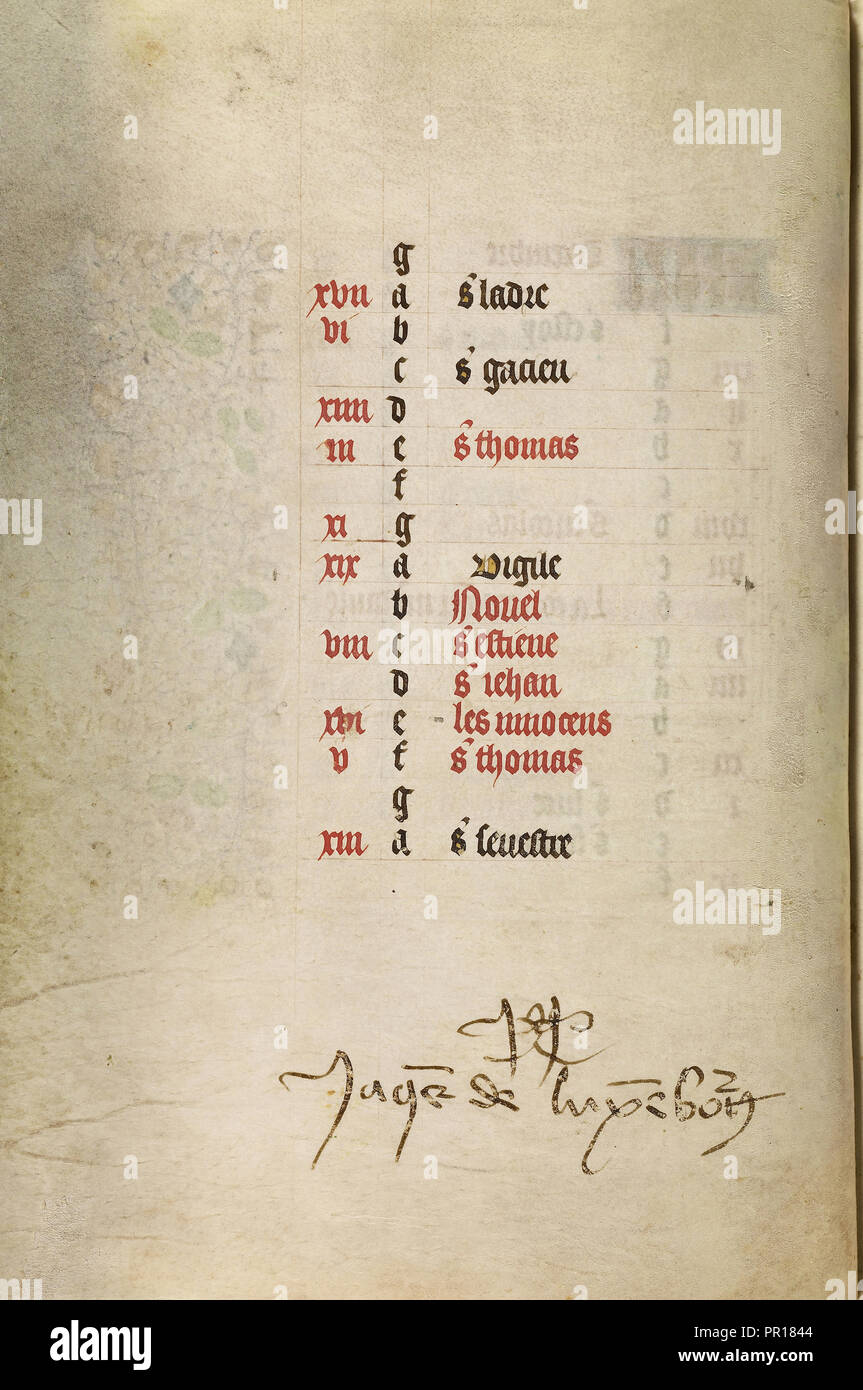 g
xvii a s̃ ladre
vi b
c s̃ gacien
xiiii d
iii e s̃ thomas
f
xi g
xix a vigile
b Nouel
viii c s̃ estiene
d s̃ iehan
xvi e les innocens
v f s̃ thomas
g
xiii a s̃ seuestre
Jaq̄s de luxēbourg
alamy
Image ID: PR1844
www.alamy.com